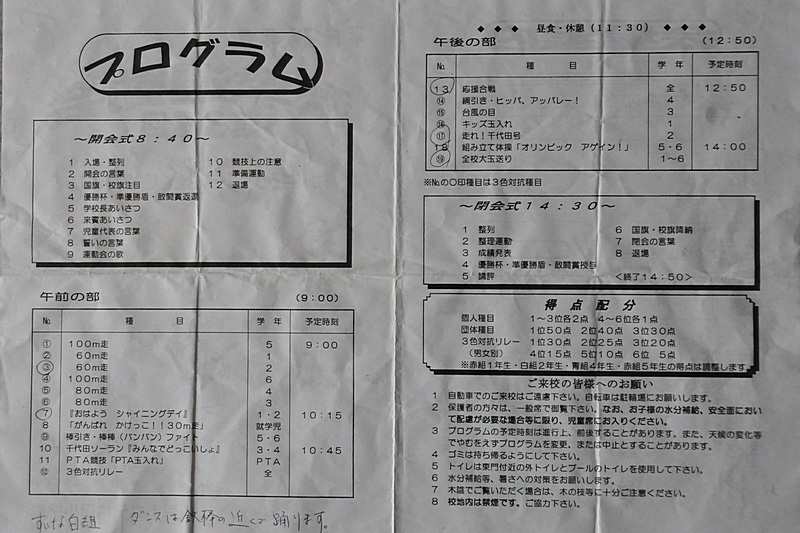 プログラム
～開会式8：40～
1 入場・整列
2 開会の言葉
3 国旗・校旗注目
4 優勝杯・準優勝盾・敢闘賞返還
5 学校長あいさつ
6 来賓あいさつ
7 児童代表の言葉
8 誓いの言葉
9 運動会の歌
10 競技上の注意
11 準備運動
12 退場
午前の部 (9:00)
№ 種目 学年 予定時刻
① 100m走 5 9:00
② 60m走 1
③ 60m走 2
④ 100m走 6
⑤ 80m走 4
⑥ 80m走 3
⑦ 『おはよう シャイニングデイ』 1・2 10:15
8 「がんばれ かけっこ！！30m走」 就学児
⑨ 棒引き・棒棒（バンバン）ファイト 5・6
10 千代田ソーラン『みんなでどっこいしょ』 3・4 10:45
11 PTA競技「PTA玉入れ」 PTA
⑫ 3色対抗リレー 全
白組 ダンスは鉄棒の近くで踊ります。
◆ ◆ ◆ 昼食・休憩（11：30） ◆ ◆ ◆
午後の部 (12:50)
№ 種目 学年 予定時刻
13 応援合戦 全 12:50
⑭ 綱引き・ヒッパ、アッパレー！ 4
⑮ 台風の目 3
⑯ キッズ玉入れ 1
⑰ 走れ！千代田号 2
18 組み立て体操「オリンピック アゲイン！」 5・6 14:00
⑲ 全校大玉送り 1～6
※№の〇印種目は3色対抗種目
～閉会式14：30～
1 整列
2 整理運動
3 成績発表
4 優勝杯・準優勝盾・敢闘賞授与
5 講評
6 国旗・校旗降納
7 閉会の言葉
8 退場
＜終了14：50＞
得点配分
個人種目 1～3位各2点 4～6位各1点
団体種目 1位50点 2位40点 3位30点
3色対抗リレー 1位30点 2位25点 3位20点
（男女別） 4位15点 5位10点 6位 5点
※赤組1年生・白組2年生・青組4年生・赤組5年生の得点は調整します。
ご来校の皆様へのお願い
1 自動車でのご来校はご遠慮下さい。自転車は駐輪場にお願いします。
2 保護者の方々は、一般席で御覧下さい。なお、お子様の水分補給、安全面において配慮が必要な場合等に限り、児童席にお入りください。
3 プログラムの予定時刻は進行上、前後することがあります。また、天候の変化等でやむをえずプログラムを変更、または中止とすることがあります。
4 ゴミは持ち帰るようにして下さい。
5 トイレは東門付近の外トイレとプールのトイレを使用して下さい。
6 水分補給等、暑さへの対策をお願いします。
7 木陰でご覧いただく場合は、木の枝等に十分ご注意ください。
8 校地内は禁煙です。ご協力下さい。